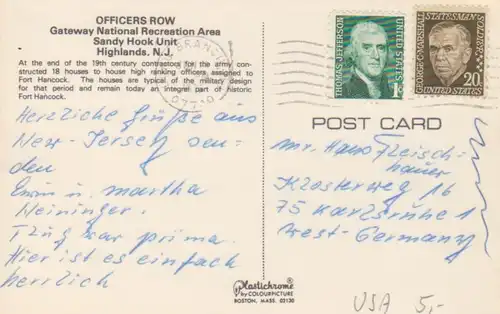 OFFICERS ROW
Gateway National Recreation Area
Sandy Hook Unit
Highlands, N.J.
At the end of the 19th century contractors for the army con-
structed 18 houses to house high ranking officers assigned to
Fort Hancock. The houses are typical of the military design
for that period and remain today an integral part of historic
Fort Hancock.
Herzliche Grüße aus
New-Jersey sen-
den
Erwin u. Martha
Meininger.
Flug war prima.
Hier ist es einfach
herrlich
THOMAS JEFFERSON
UNITED STATES
1c
GEORGE C. MARSHALL
STATESMAN SOLDIER
20c
UNITED STATES
POST CARD
Mr. Hans Fleisch-
hauer
Klosterweg 16
75 Karlsruhe 1
West-Germany
Plastichrome®
by COLOURPICTURE
BOSTON, MASS. 02130
USA 5,-